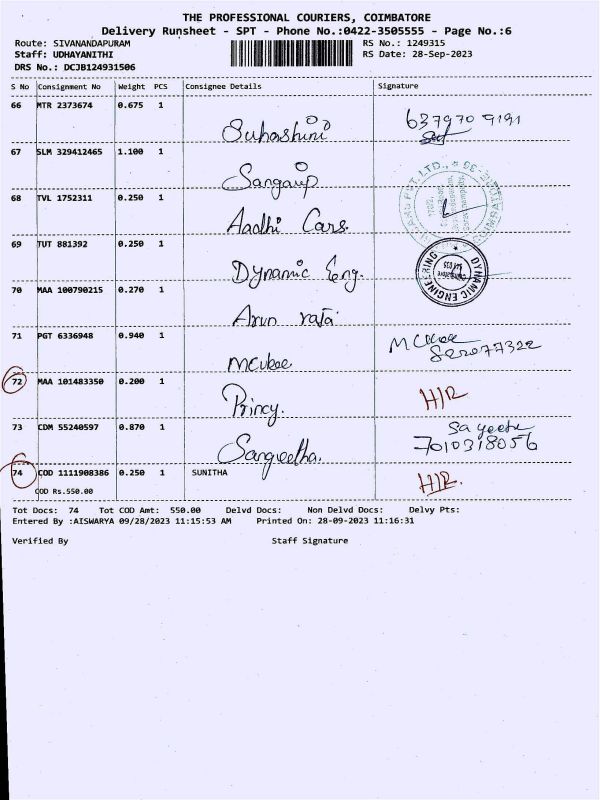 THE PROFESSIONAL COURIERS, COIMBATORE
Delivery Runsheet - SPT - Phone No.:0422-3505555 - Page No.:6
Route: SIVANANDAPURAM RS No.: 1249315
Staff: UDHAYANITHI RS Date: 28-Sep-2023
DRS No.: DCJB124931506
S No Consignment No Weight PCS Consignee Details Signature
66 MTR 2373674 0.675 1 Suhashini 637970 9191
67 SLM 329412465 1.100 1
68 TVL 1752311 0.250 1 Aadhi Cars.
69 TUT 881392 0.250 1 Dynamic Eng. DYNAMIC ENGINEERING
70 MAA 100790215 0.270 1 Arun raja
71 PGT 6336948 0.940 1
72 MAA 101483350 0.200 1 Princy. H/R
73 CDM 55240597 0.870 1 Sangeetha. 7010318056
74 COD 1111908386 0.250 1 SUNITHA H/R.
COD Rs.550.00
Tot Docs: 74 Tot COD Amt: 550.00 Delvd Docs: Non Delvd Docs: Delvy Pts:
Entered By :AISWARYA 09/28/2023 11:15:53 AM Printed On: 28-09-2023 11:16:31
Verified By Staff Signature